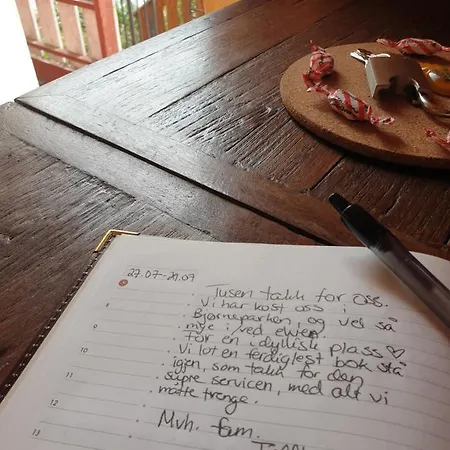 27.07-29.07
Tusen takk for oss.
Vi har kost oss i
Bjørneparken og ved så
mye i/ved elven.
For en idyllisk plass ♡
Vi lot en ferdiglest bok stå
igjen, som takk for den
supre servicen, med alt vi
måtte trenge.
Mvh. fam.
8
9
10
11
12
13